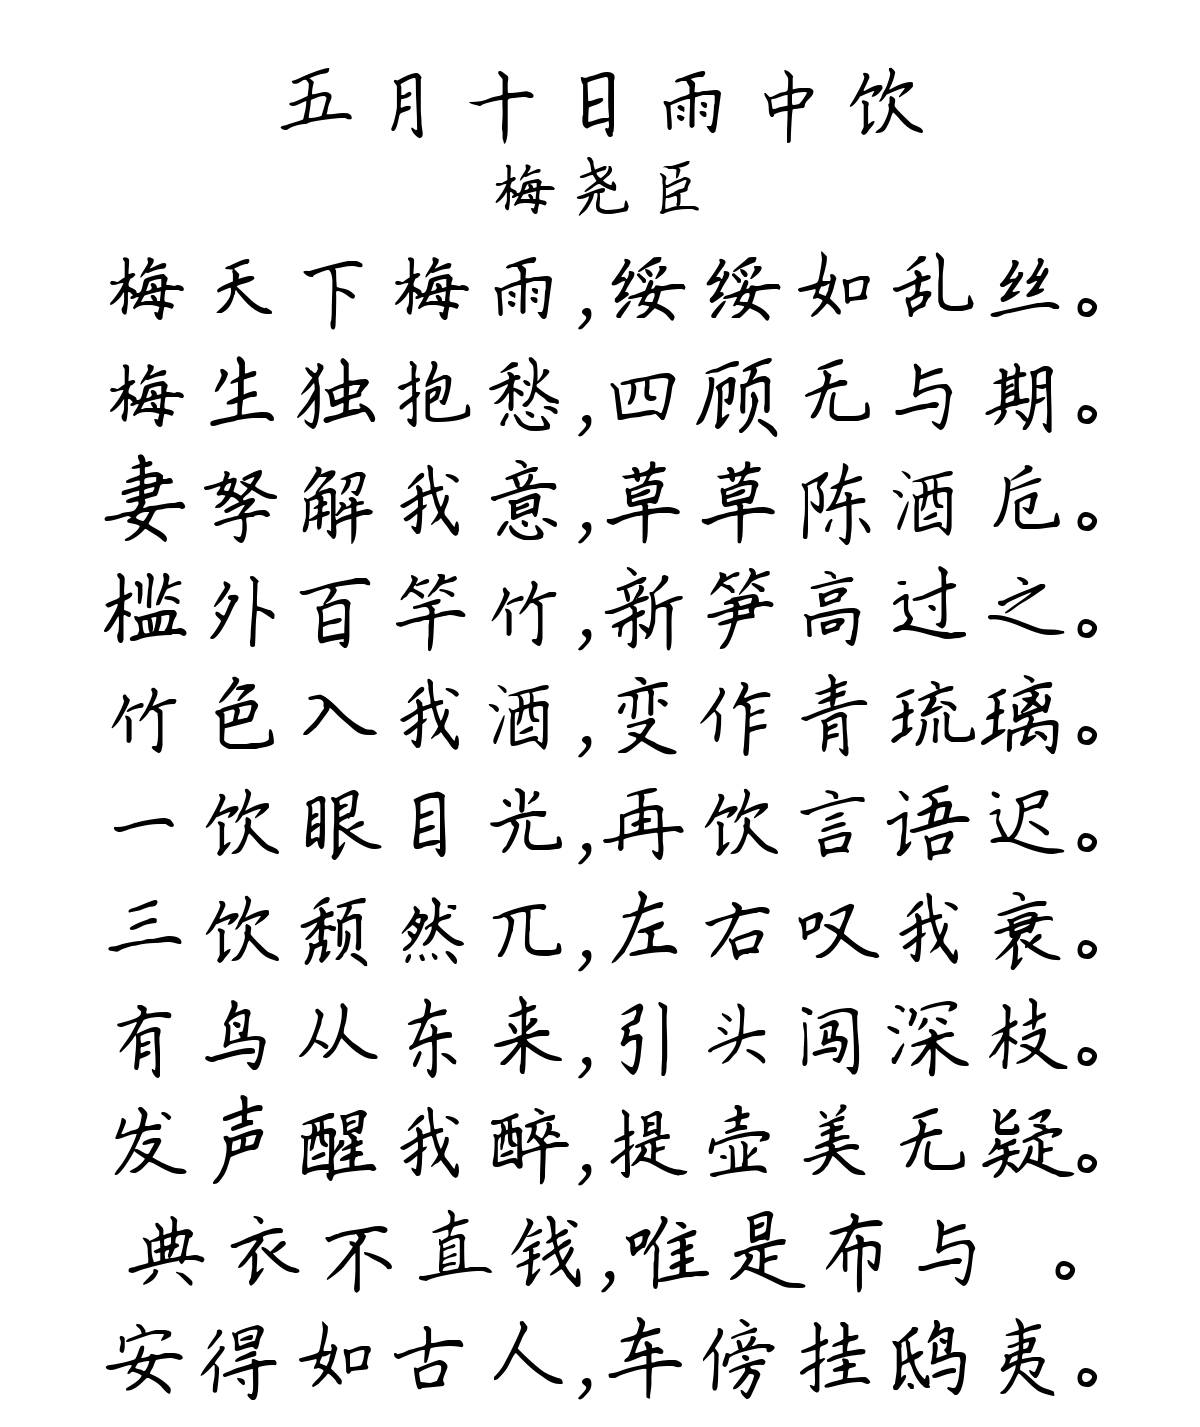 五月十日雨中饮
梅尧臣
梅天下梅雨,绥绥如乱丝。
梅生独抱愁,四顾无与期。
妻孥解我意,草草陈酒卮。
槛外百竿竹,新笋高过之。
竹色入我酒,变作青琉璃。
一饮眼目光,再饮言语迟。
三饮颓然兀,左右叹我衰。
有鸟从东来,引头闯深枝。
发声醒我醉,提壶美无疑。
典衣不直钱,唯是布与 。
安得如古人,车傍挂鸱夷。